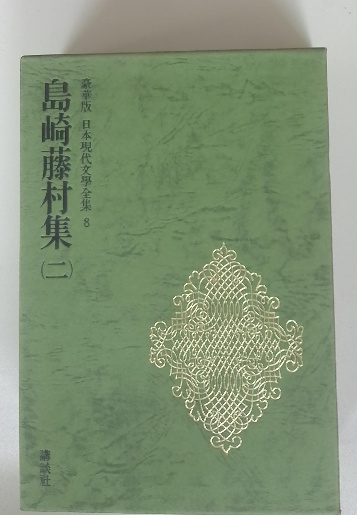 豪華版 日本現代文學全集 8
島崎藤村集(二)
講談社